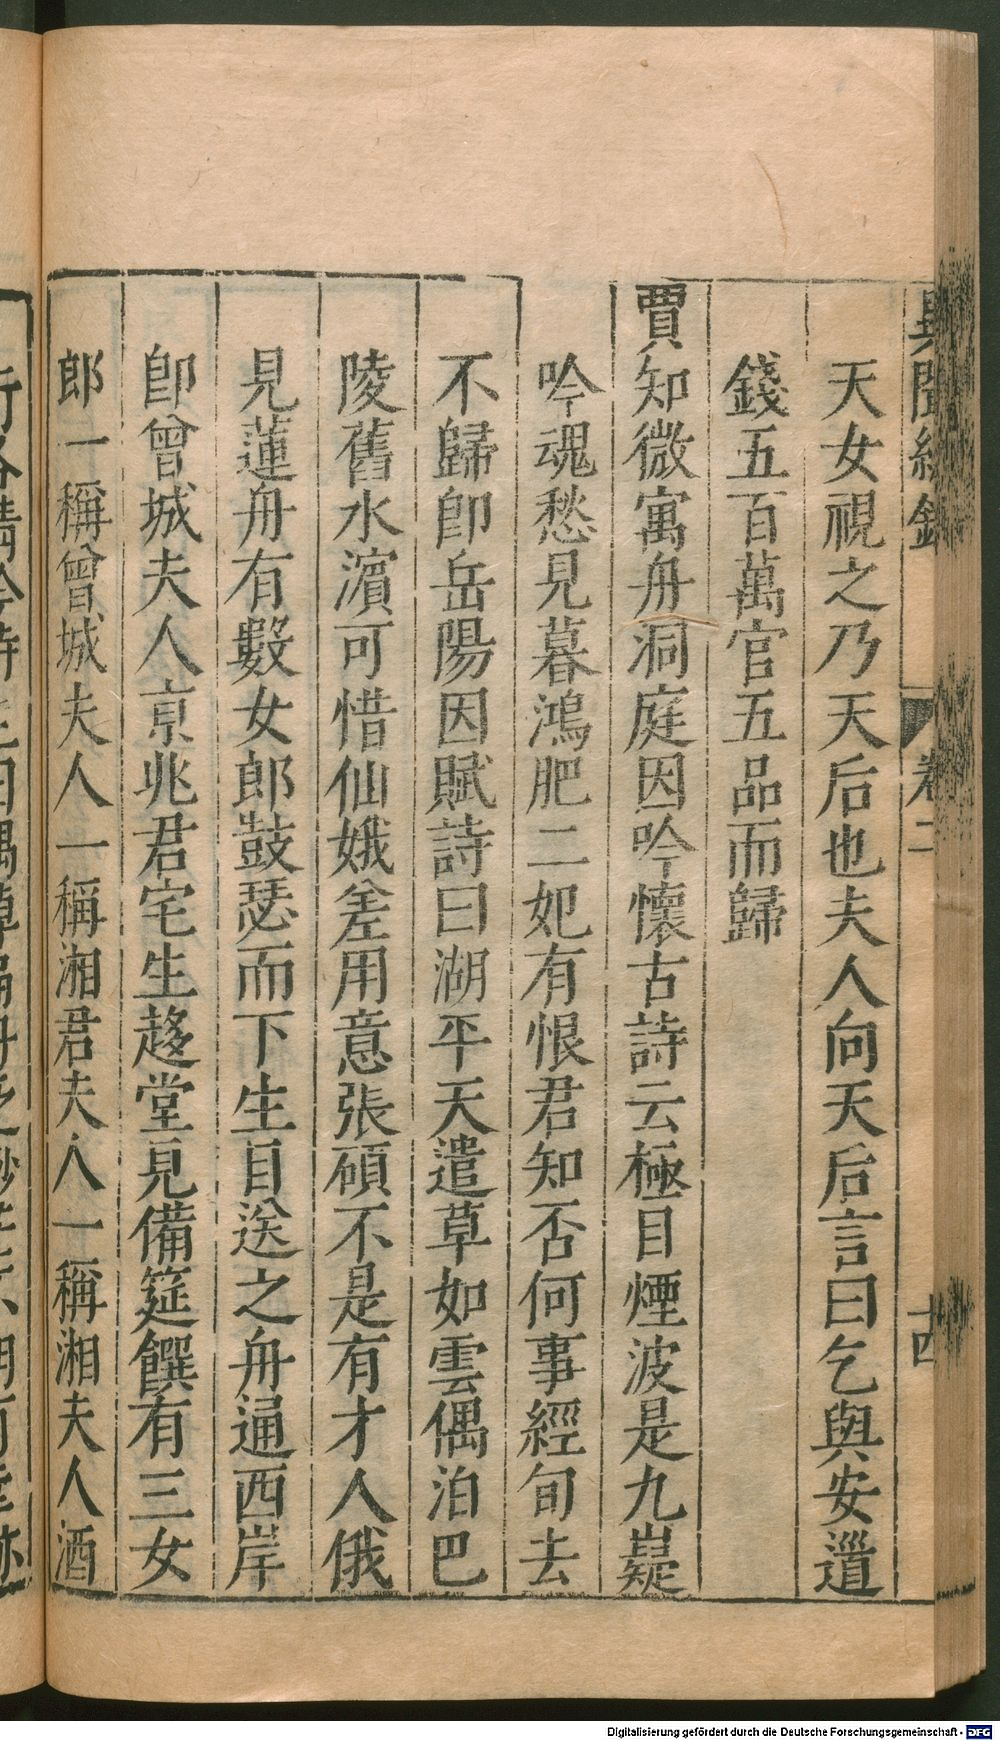 異聞總錄
卷二
十四
天女視之乃天后也夫人向天后言曰乞與安道
錢五百萬官五品而歸
賈知微寓舟洞庭因吟懷古詩云極目煙波是九嶷
吟魂愁見暮鴻肥二妃有恨君知否何事經旬去
不歸卽岳陽因賦詩曰湖平天遣草如雲偶泊巴
陵舊水濵可惜仙娥差用意張碩不是有才人俄
見蓮舟有數女郎鼓瑟而下生目送之舟通西岸
卽曾城夫人京兆君宅生趍堂見備筵饌有三女
郎一稱曾城夫人一稱湘君夫人一稱湘夫人酒
Digitalisierung gefördert durch die Deutsche Forschungsgemeinschaft - DFG